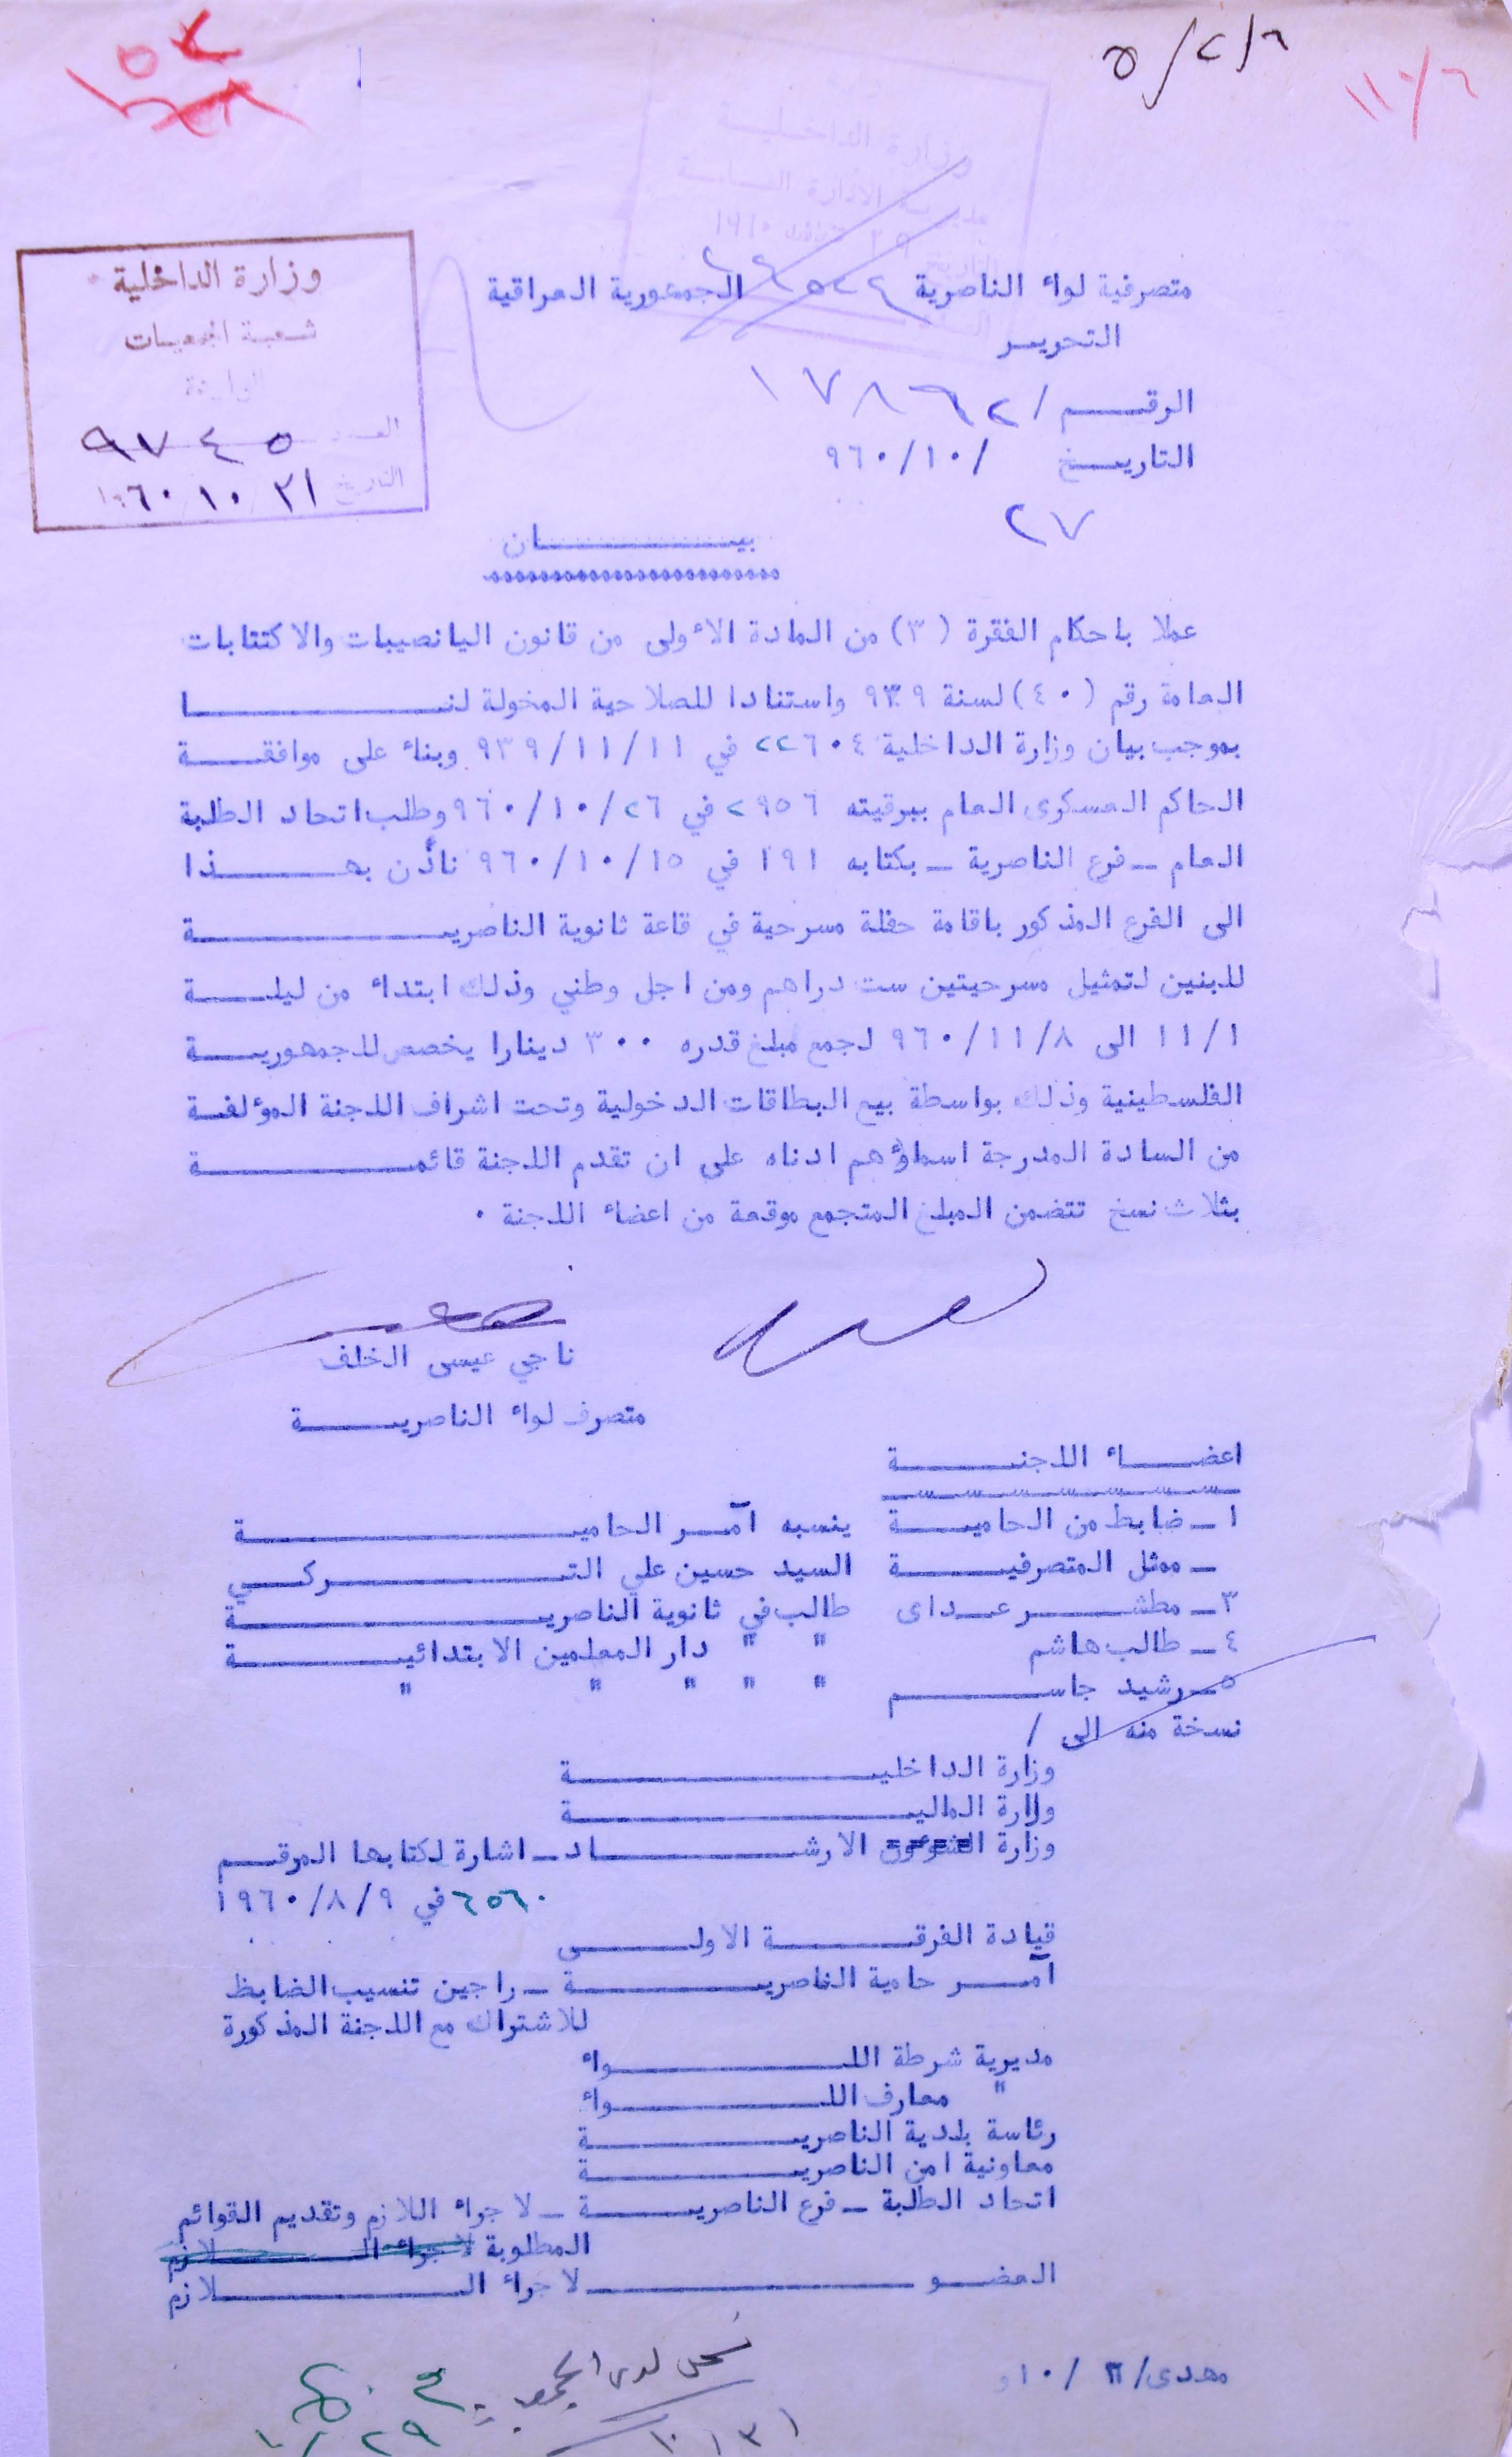 ٥٢
٥/٢/٦
١١٠/٦
وزارة الداخلية
شعبة الجمعيات
الواردة
العدد ٩٧٤٥
التاريخ ٣١ / ١٠ / ١٩٦٠
وزارة الداخلية
متصرفية لواء الناصرية الجمهورية العراقية
التحرير
الرقم / ١٧٨٦٢
التاريخ / ١٠/ ٩٦٠
٢٧
بيان
عملا باحكام الفقرة (٣) من المادة الأولى من قانون اليانصيبات والاكتتابات
العامة رقم (٤٠) لسنة ٩٣٩ واستنادا للصلاحية المخولة لنا
بموجب بيان وزارة الداخلية ٢٢٦٠٤ في ٩٣٩/١١/١١ وبناء على موافقة
الحاكم العسكرى العام ببرقيته ٢٩٥٦ في ٩٦٠/١٠/٢٦ وطلب اتحاد الطلبة
العام ـ فرع الناصرية ـ بكتابه ١٩١ في ٩٦٠/١٠/١٥ نأذن بهذا
الى الفرع المذكور باقامة حفلة مسرحية في قاعة ثانوية الناصرية
للبنين لتمثيل مسرحيتين ست دراهم ومن اجل وطني وذلك ابتداء من ليلة
١١/١ الى ٩٦٠/١١/٨ لجمع مبلغ قدره ٣٠٠ دينارا يخصص للجمهورية
الفلسطينية وذلك بواسطة بيع البطاقات الدخولية وتحت اشراف اللجنة المؤلفة
من السادة المدرجة اسماؤهم ادناه على ان تقدم اللجنة قائمة
بثلاث نسخ تتضمن المبلغ المتجمع موقعة من اعضاء اللجنة ٠
ناجي عيسى الخلف
متصرف لواء الناصرية
اعضاء اللجنة
١ ـ ضابط من الحامية ينسبه آمر الحامية
ـ ممثل المتصرفية السيد حسين علي التركي
٣ ـ مطشر عداى طالب في ثانوية الناصرية
٤ ـ طالب هاشم " " دار المعلمين الابتدائية
٥ ـ رشيد جاسم " " " " "
نسخة منه الى /
وزارة الداخلية
وزارة المالية
وزارة الارشاد ـ اشارة لكتابها المرقم
٦٥٦٠ في ١٩٦٠/٨/٩
قيادة الفرقة الاولى
آمر حامية الناصرية ـ راجين تنسيب الضابط
للاشتراك مع اللجنة المذكورة
مديرية شرطة اللواء
" معارف اللواء
رئاسة بلدية الناصرية
معاونية امن الناصرية
اتحاد الطلبة ـ فرع الناصرية ـ لاجراء اللازم وتقديم القوائم
المطلوبة لاجراء اللازم
العضو لاجراء اللازم
مهدى/ /١٠
٣١ / ١٠
٢٩ / ١٠